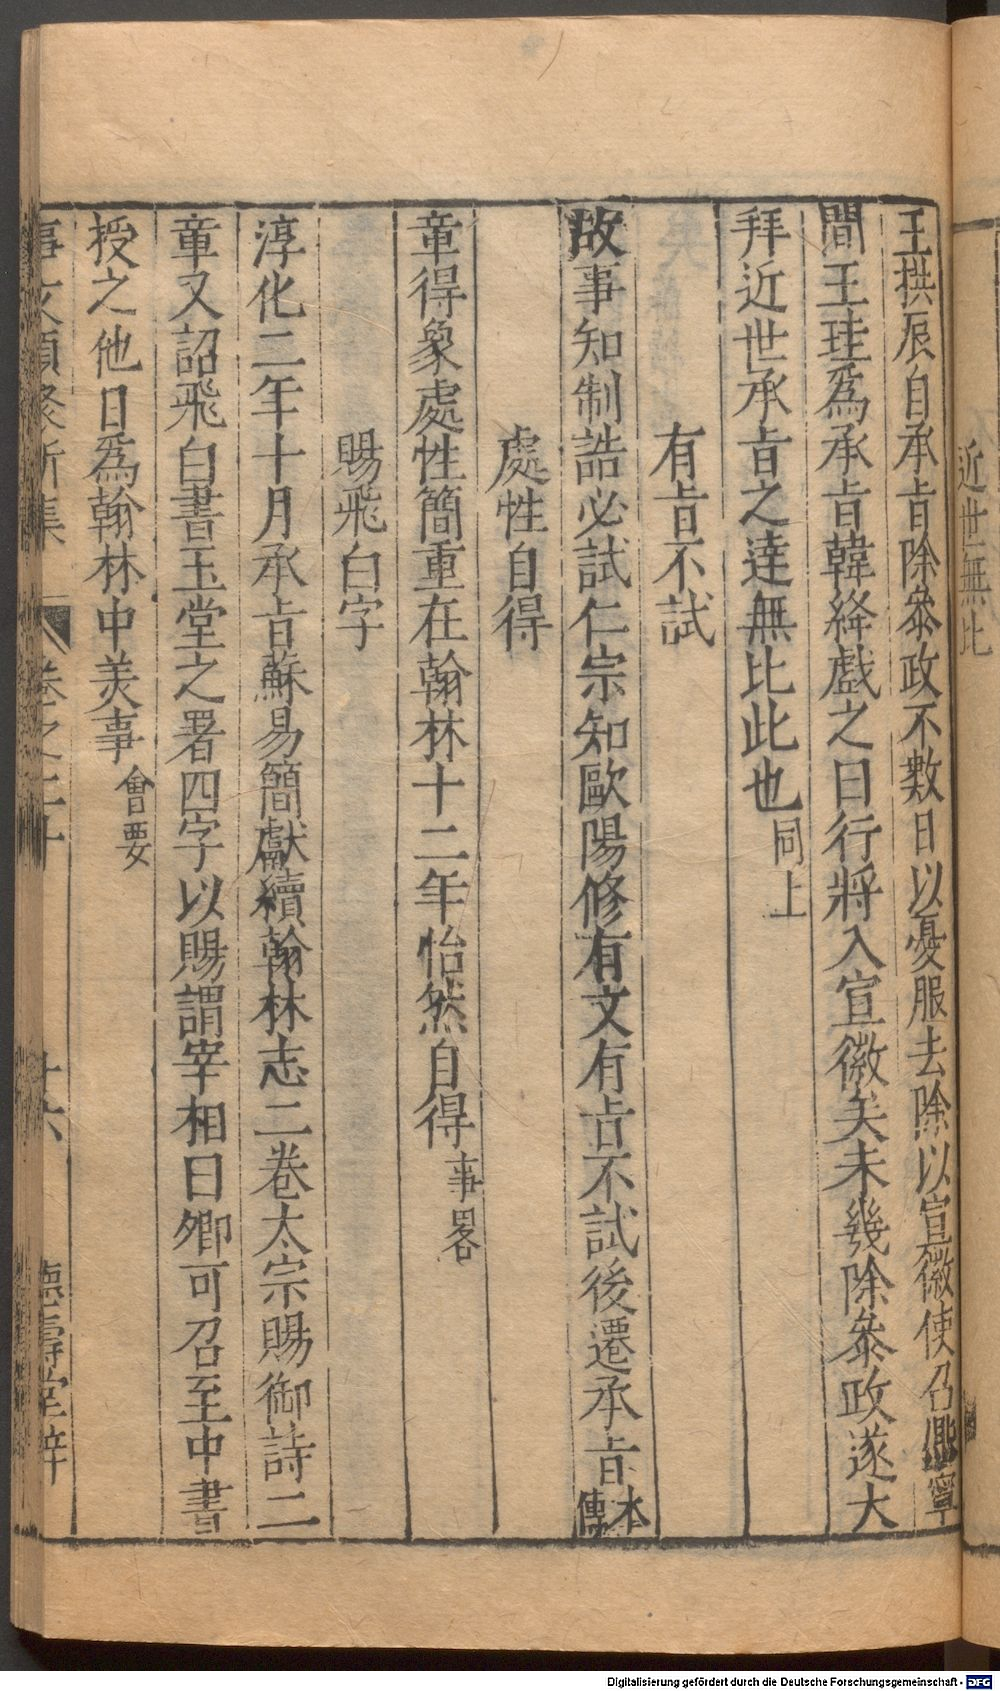 近世無比
王拱辰自承旨除叅政不數日以憂服去除以宣徽使召熈寧
間王珪爲承旨韓絳戲之曰行將入宣徽矣未幾除叅政遂大
拜近世承旨之達無比此也同上
有旨不試
故事知制誥必試仁宗知歐陽修有文有旨不試後遷承旨本傳
處性自得
章得象處性簡重在翰林十二年怡然自得事畧
賜飛白字
淳化二年十月承旨蘇易簡獻續翰林志二卷太宗賜御詩二
章又詔飛白書玉堂之署四字以賜謂宰相曰卿可召至中書
授之他日爲翰林中美事會要
事文類聚新集 卷之二十 十六 德壽堂梓
Digitalisierung gefördert durch die Deutsche Forschungsgemeinschaft - DFG